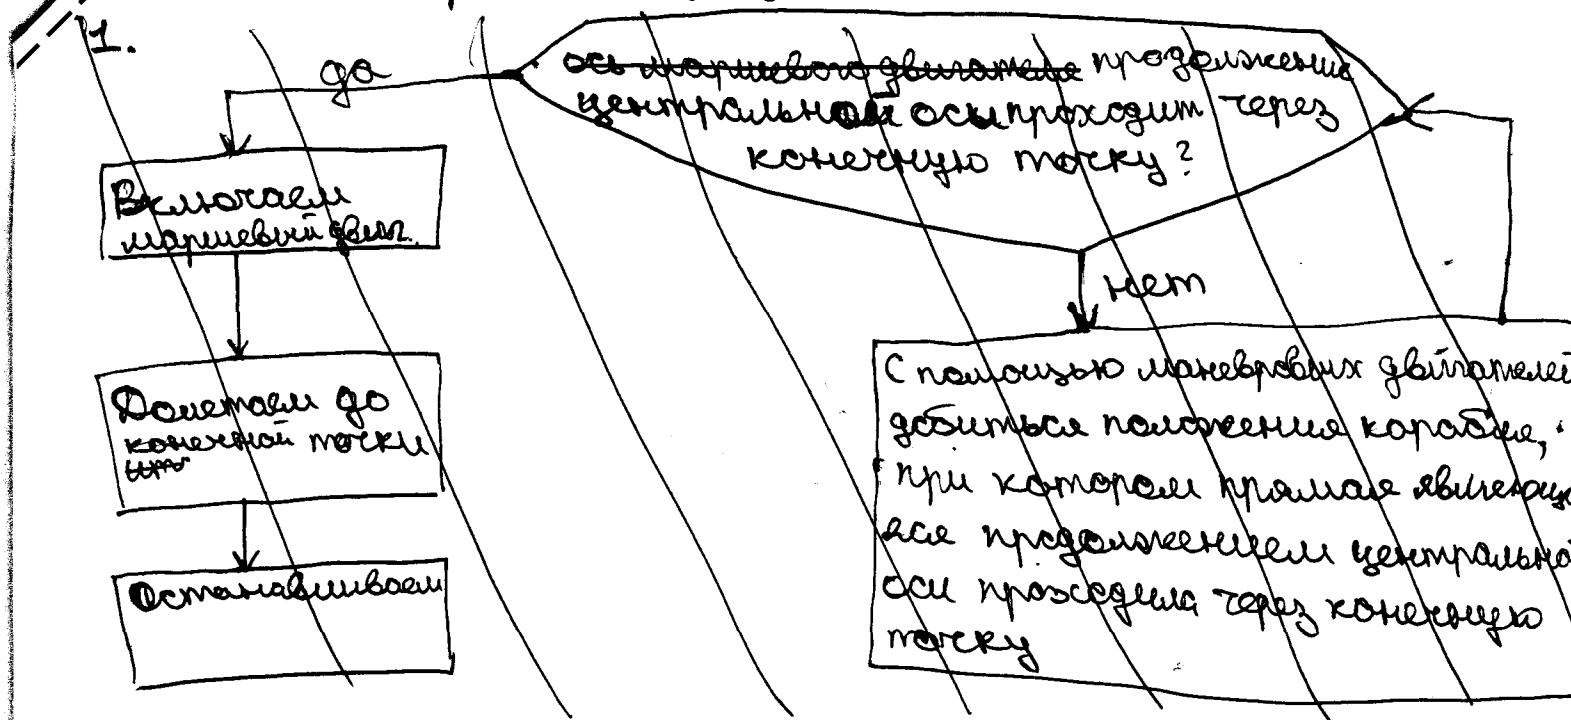 1.
да
ось маршевого двигателя продолжение
центральной оси проходит через
конечную точку?
Включаем
маршевый двиг.
нет
Долетаем до
конечной точки
С помощью маневровых двигателей
добиться положения корабля,
при котором прямая являющ
аяся продолжением центрально
оси проходила через конечную
точку
Останавливаем